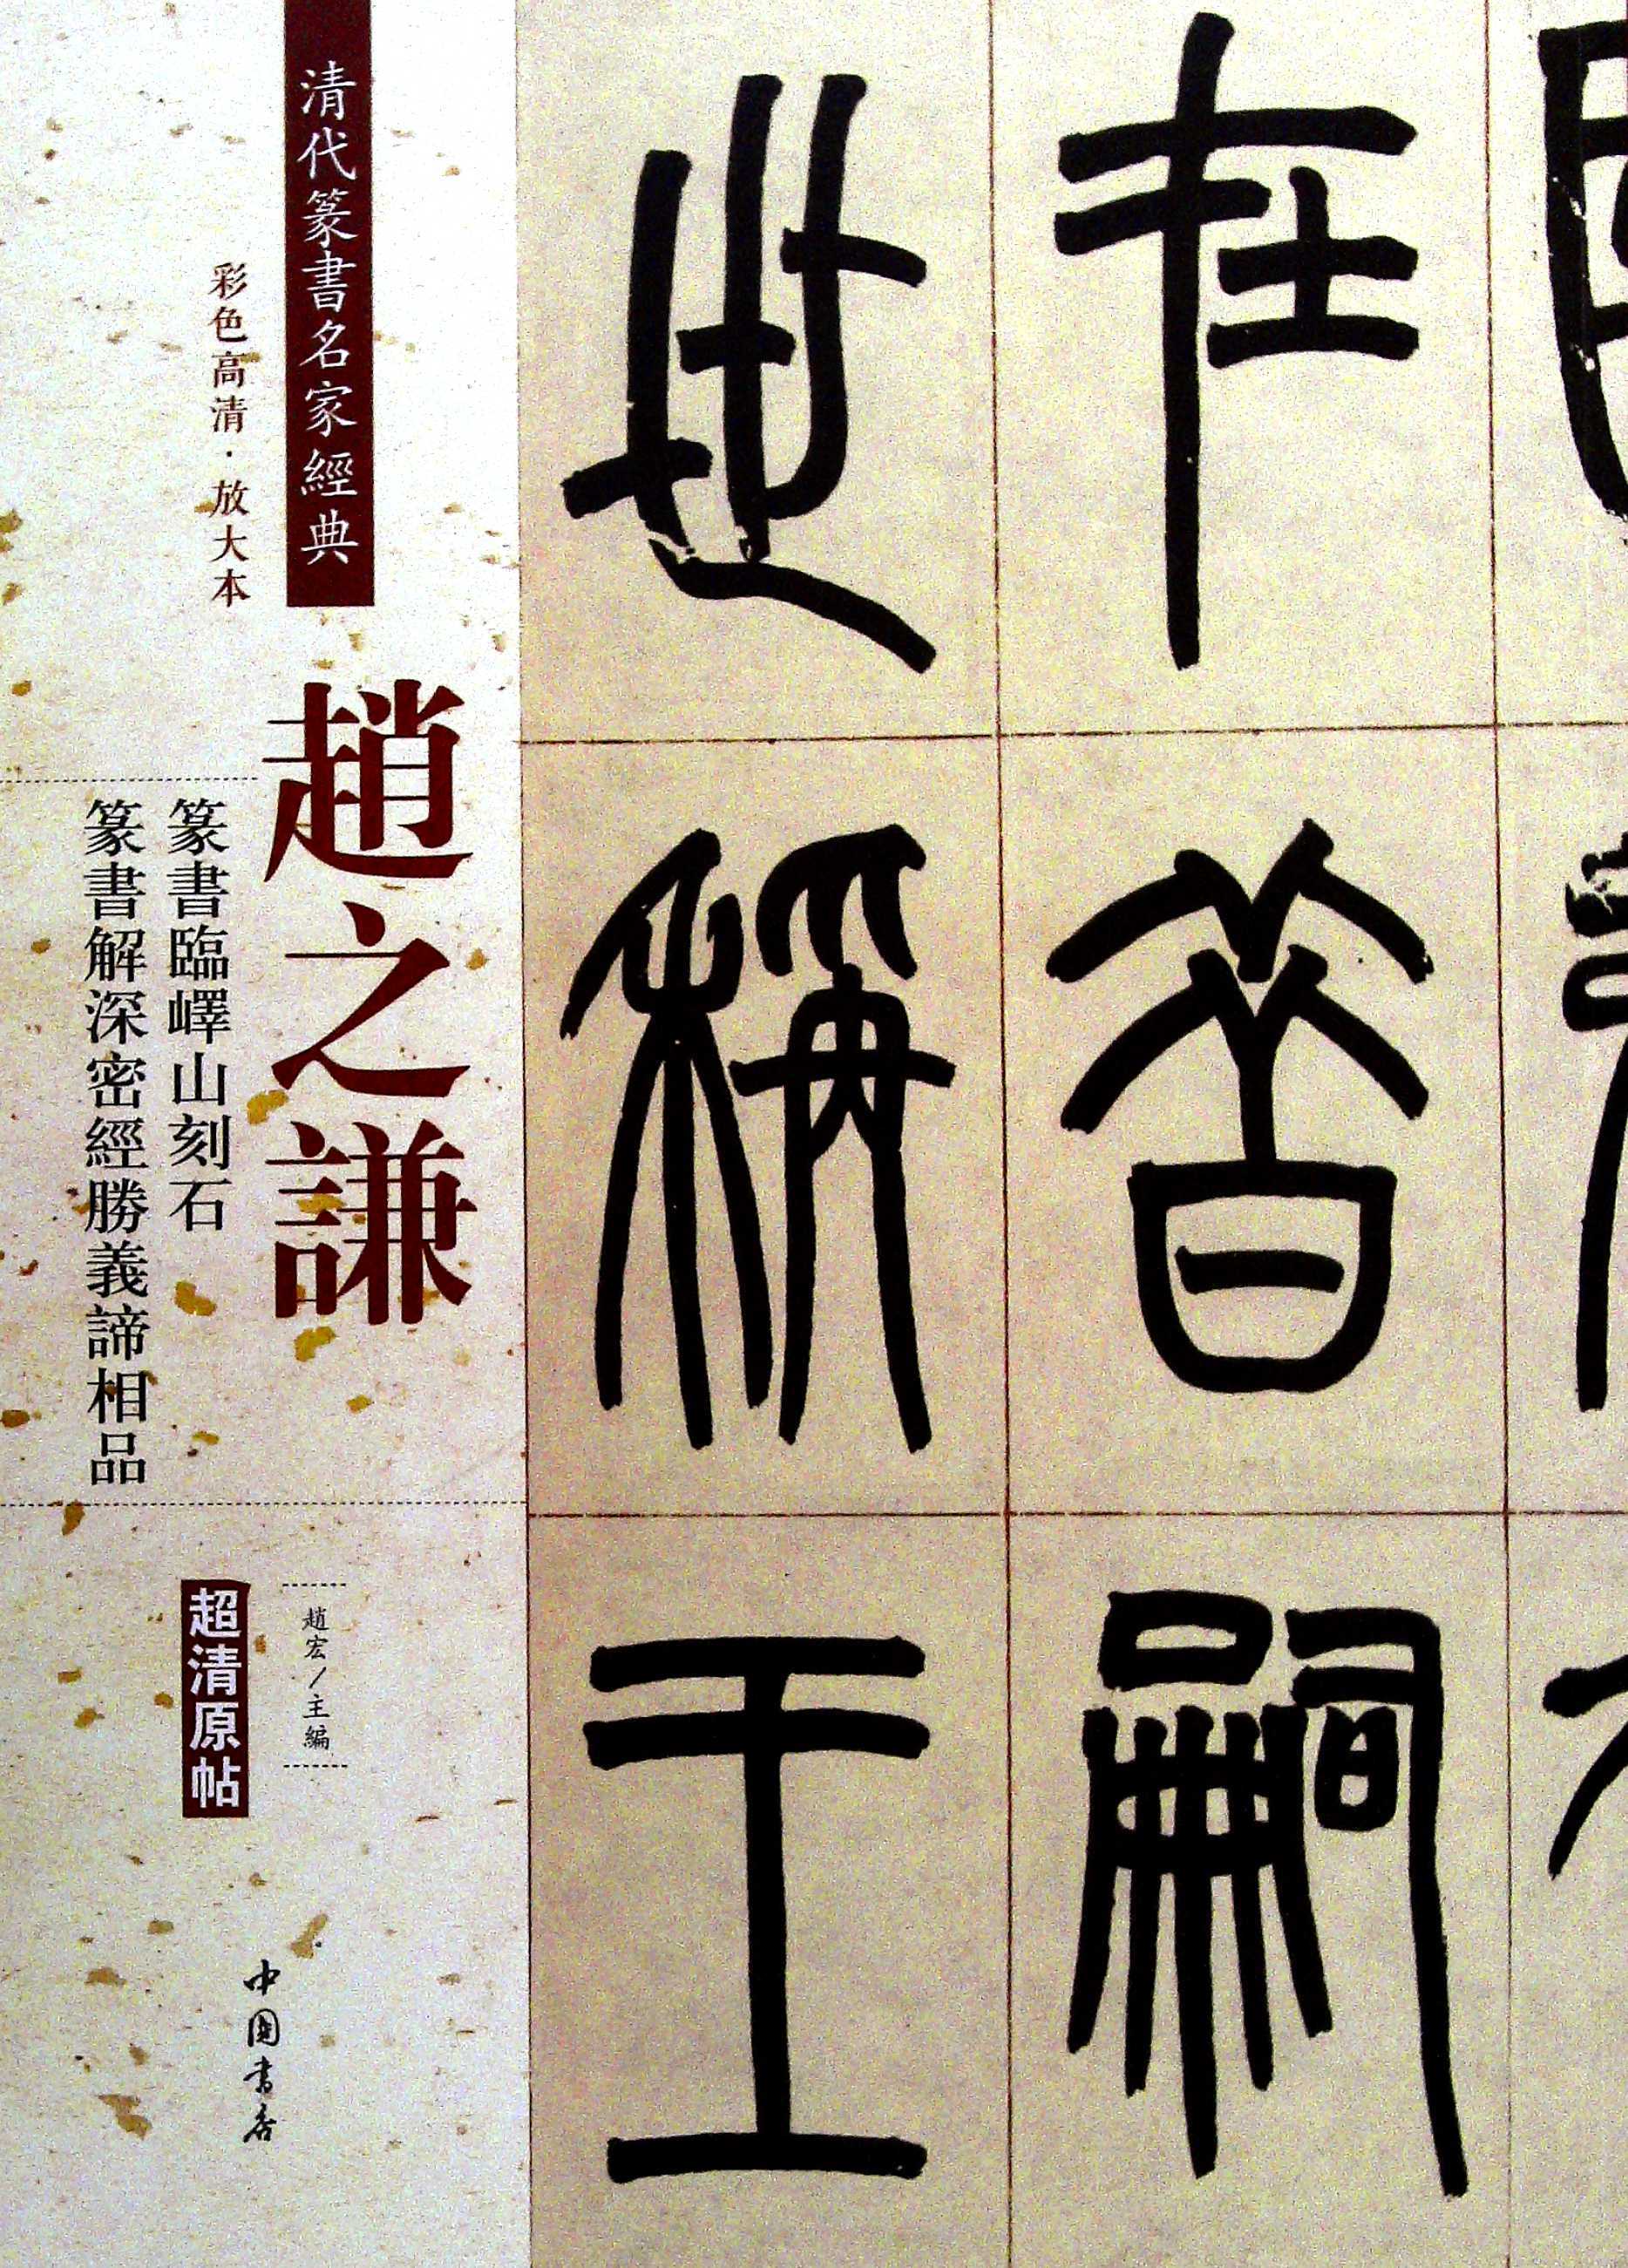 在昔嗣
世稱王
清代篆書名家經典
彩色高清·放大本
趙之謙
篆書臨嶧山刻石
篆書解深密經勝義諦相品
趙宏/主編
超清原帖
中国书店